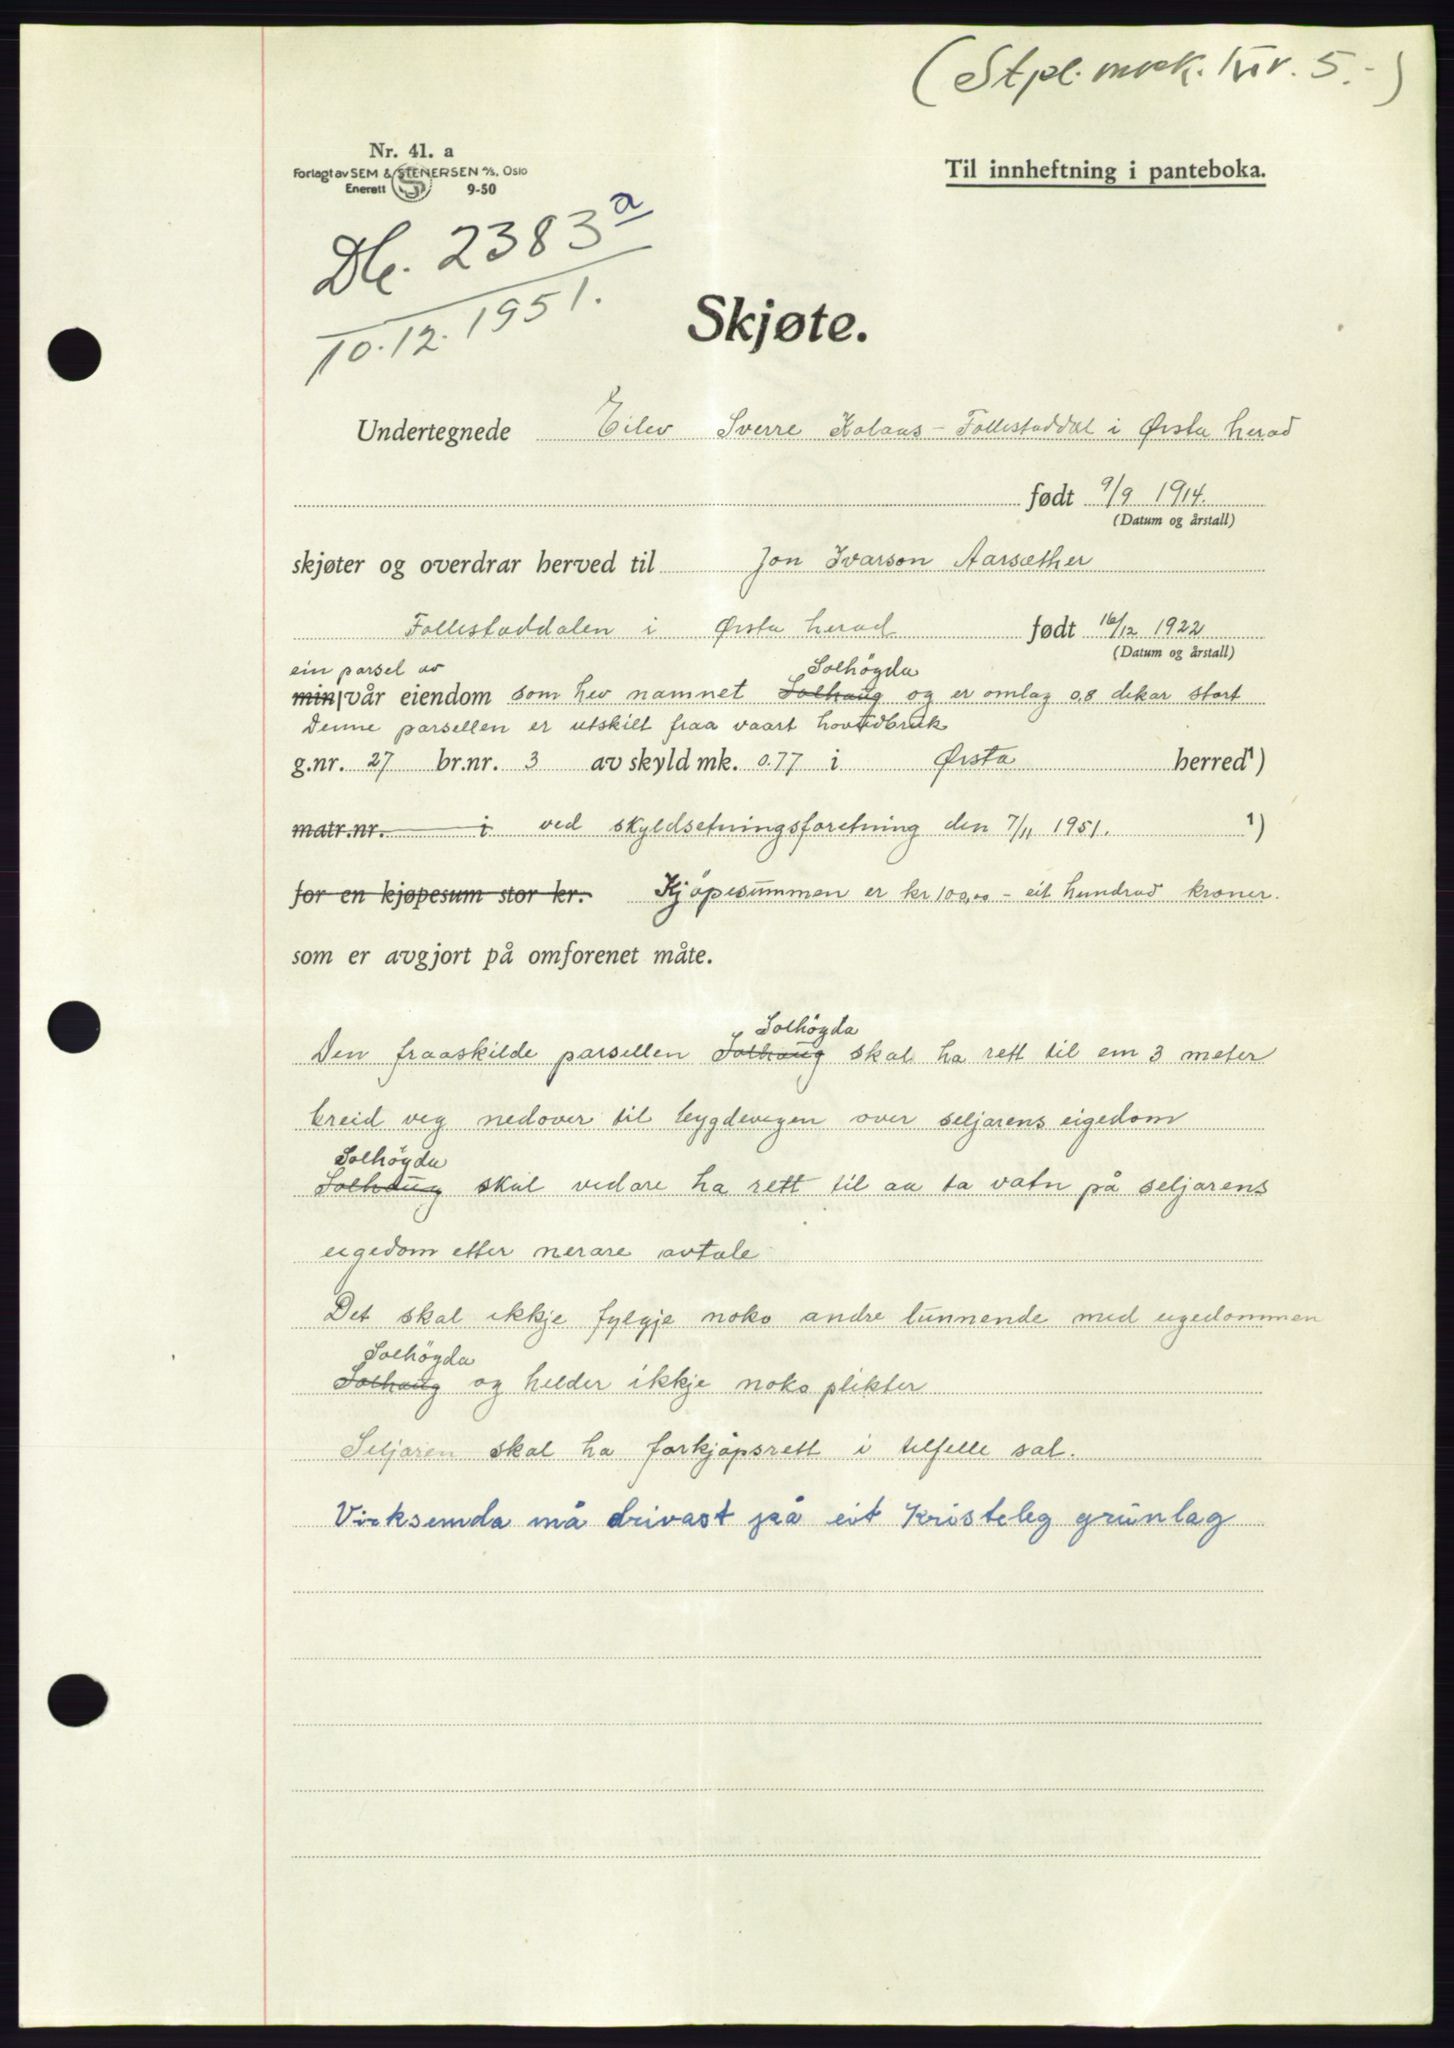 (Stpl. mrk. kr. 5.-)
Nr. 41. a
Forlagt av SEM & STENERSEN A/S, Oslo
Enerett S 9-50
Til innheftning i panteboka.
Db. 2383 a
10.12.1951.
Skjøte.
Undertegnede Eilev Sverre Kolaas - Follestaddal i Ørsta herad
født 9/9 1914.
(Datum og årstall)
skjøter og overdrar herved til Jon Ivarson Aarsæther
Follestaddalen i Ørsta herad født 16/12 1922
(Datum og årstall)
ein parsel av Solhögda
min/vår eiendom som hev namnet Solhaug og er omlag 0,8 dekar stort
Denne parsellen er utskilt fraa vaart hovedbruk
g.nr. 27 br.nr. 3 av skyld mk. 0.77 i Ørsta herred ¹)
matr.nr. i ved skyldsetningsforetning den 7/11 1951. ¹)
for en kjøpesum stor kr. Kjöpesummen er kr 100,00 - eit hundrad kroner.
som er avgjort på omforenet måte.
Solhögda
Den fraaskilde parsellen Solhaug skal ha rett til em 3 meter
breid veg nedover til bygdevegen over seljarens eigedom
Solhögda
Solhaug skal vidare ha rett til aa ta vatn på seljarens
eigedom etter nerare avtale
Det skal ikkje fylgje noko andre lunnende med eigedommen
Solhögda
Solhaug og helder ikkje noko plikter
Seljaren skal ha forkjöpsrett i tilfelle sal.
Virksemda må drivast på eit Kristeleg grunlag